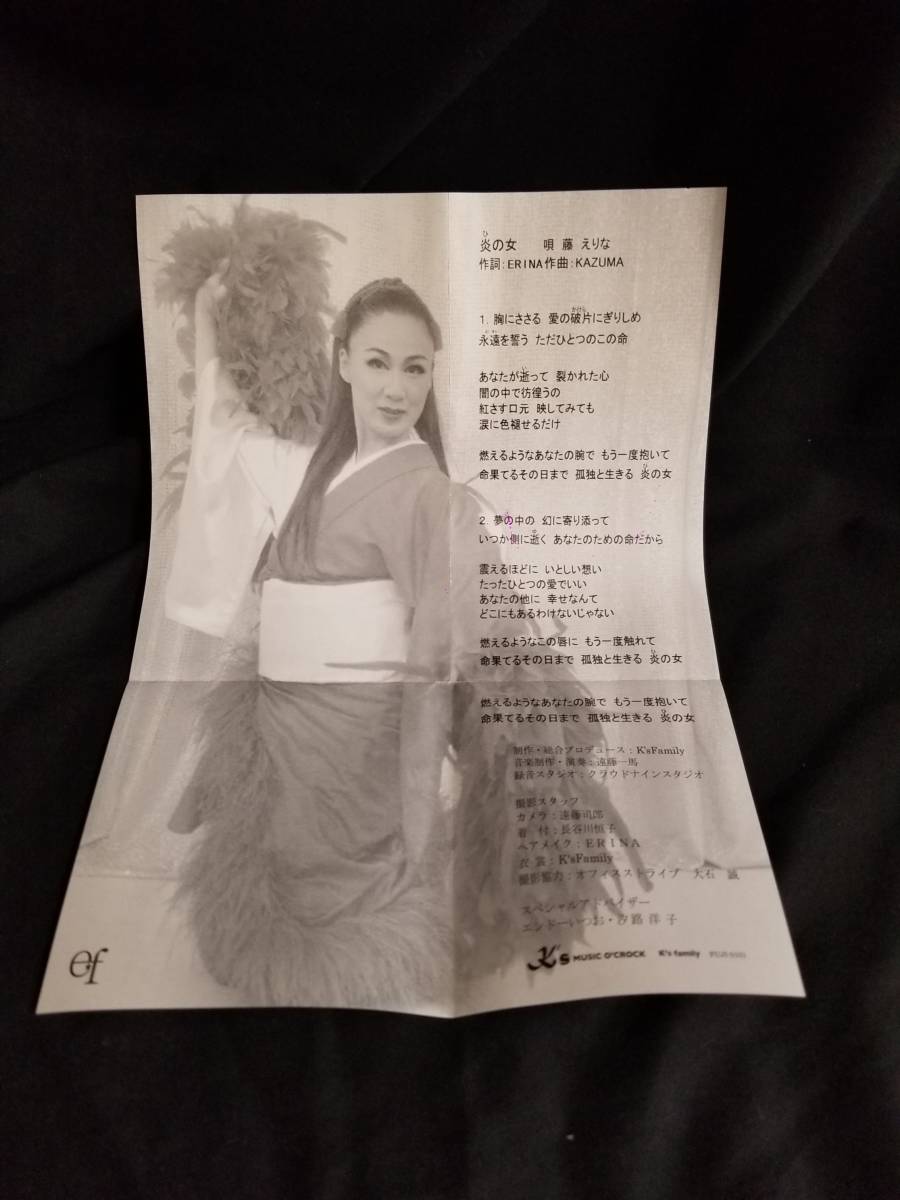 炎の女 唄 藤 えりな
作詞：ERINA作曲：KAZUMA
1. 胸にささる 愛の破片にぎりしめ
永遠を誓う ただひとつのこの命
あなたが逝って 裂かれた心
闇の中で彷徨うの
紅さす口元 映してみても
涙に色褪せるだけ
燃えるようなあなたの腕で もう一度抱いて
命果てるその日まで 孤独と生きる 炎の女
2. 夢の中の 幻に寄り添って
いつか側に逝く あなたのための命だから
震えるほどに いとしい想い
たったひとつの愛でいい
あなたの他に 幸せなんて
どこにもあるわけないじゃない
燃えるようなこの唇に もう一度触れて
命果てるその日まで 孤独と生きる 炎の女
燃えるようなあなたの腕で もう一度抱いて
命果てるその日まで 孤独と生きる 炎の女
制作・総合プロデュース：K'sFamily
音楽制作・演奏：遠藤一馬
録音スタジオ：クラウドナインスタジオ
撮影スタッフ
カメラ：遠藤司郎
着 付：長谷川恒子
ヘアメイク：ERINA
衣 裳：K'sFamily
撮影協力：オフィスストライプ 大石 誠
スペシャルアドバイザー
エンドーいつお・汐路 洋子
ef
K's MUSIC O'CROCK K's family